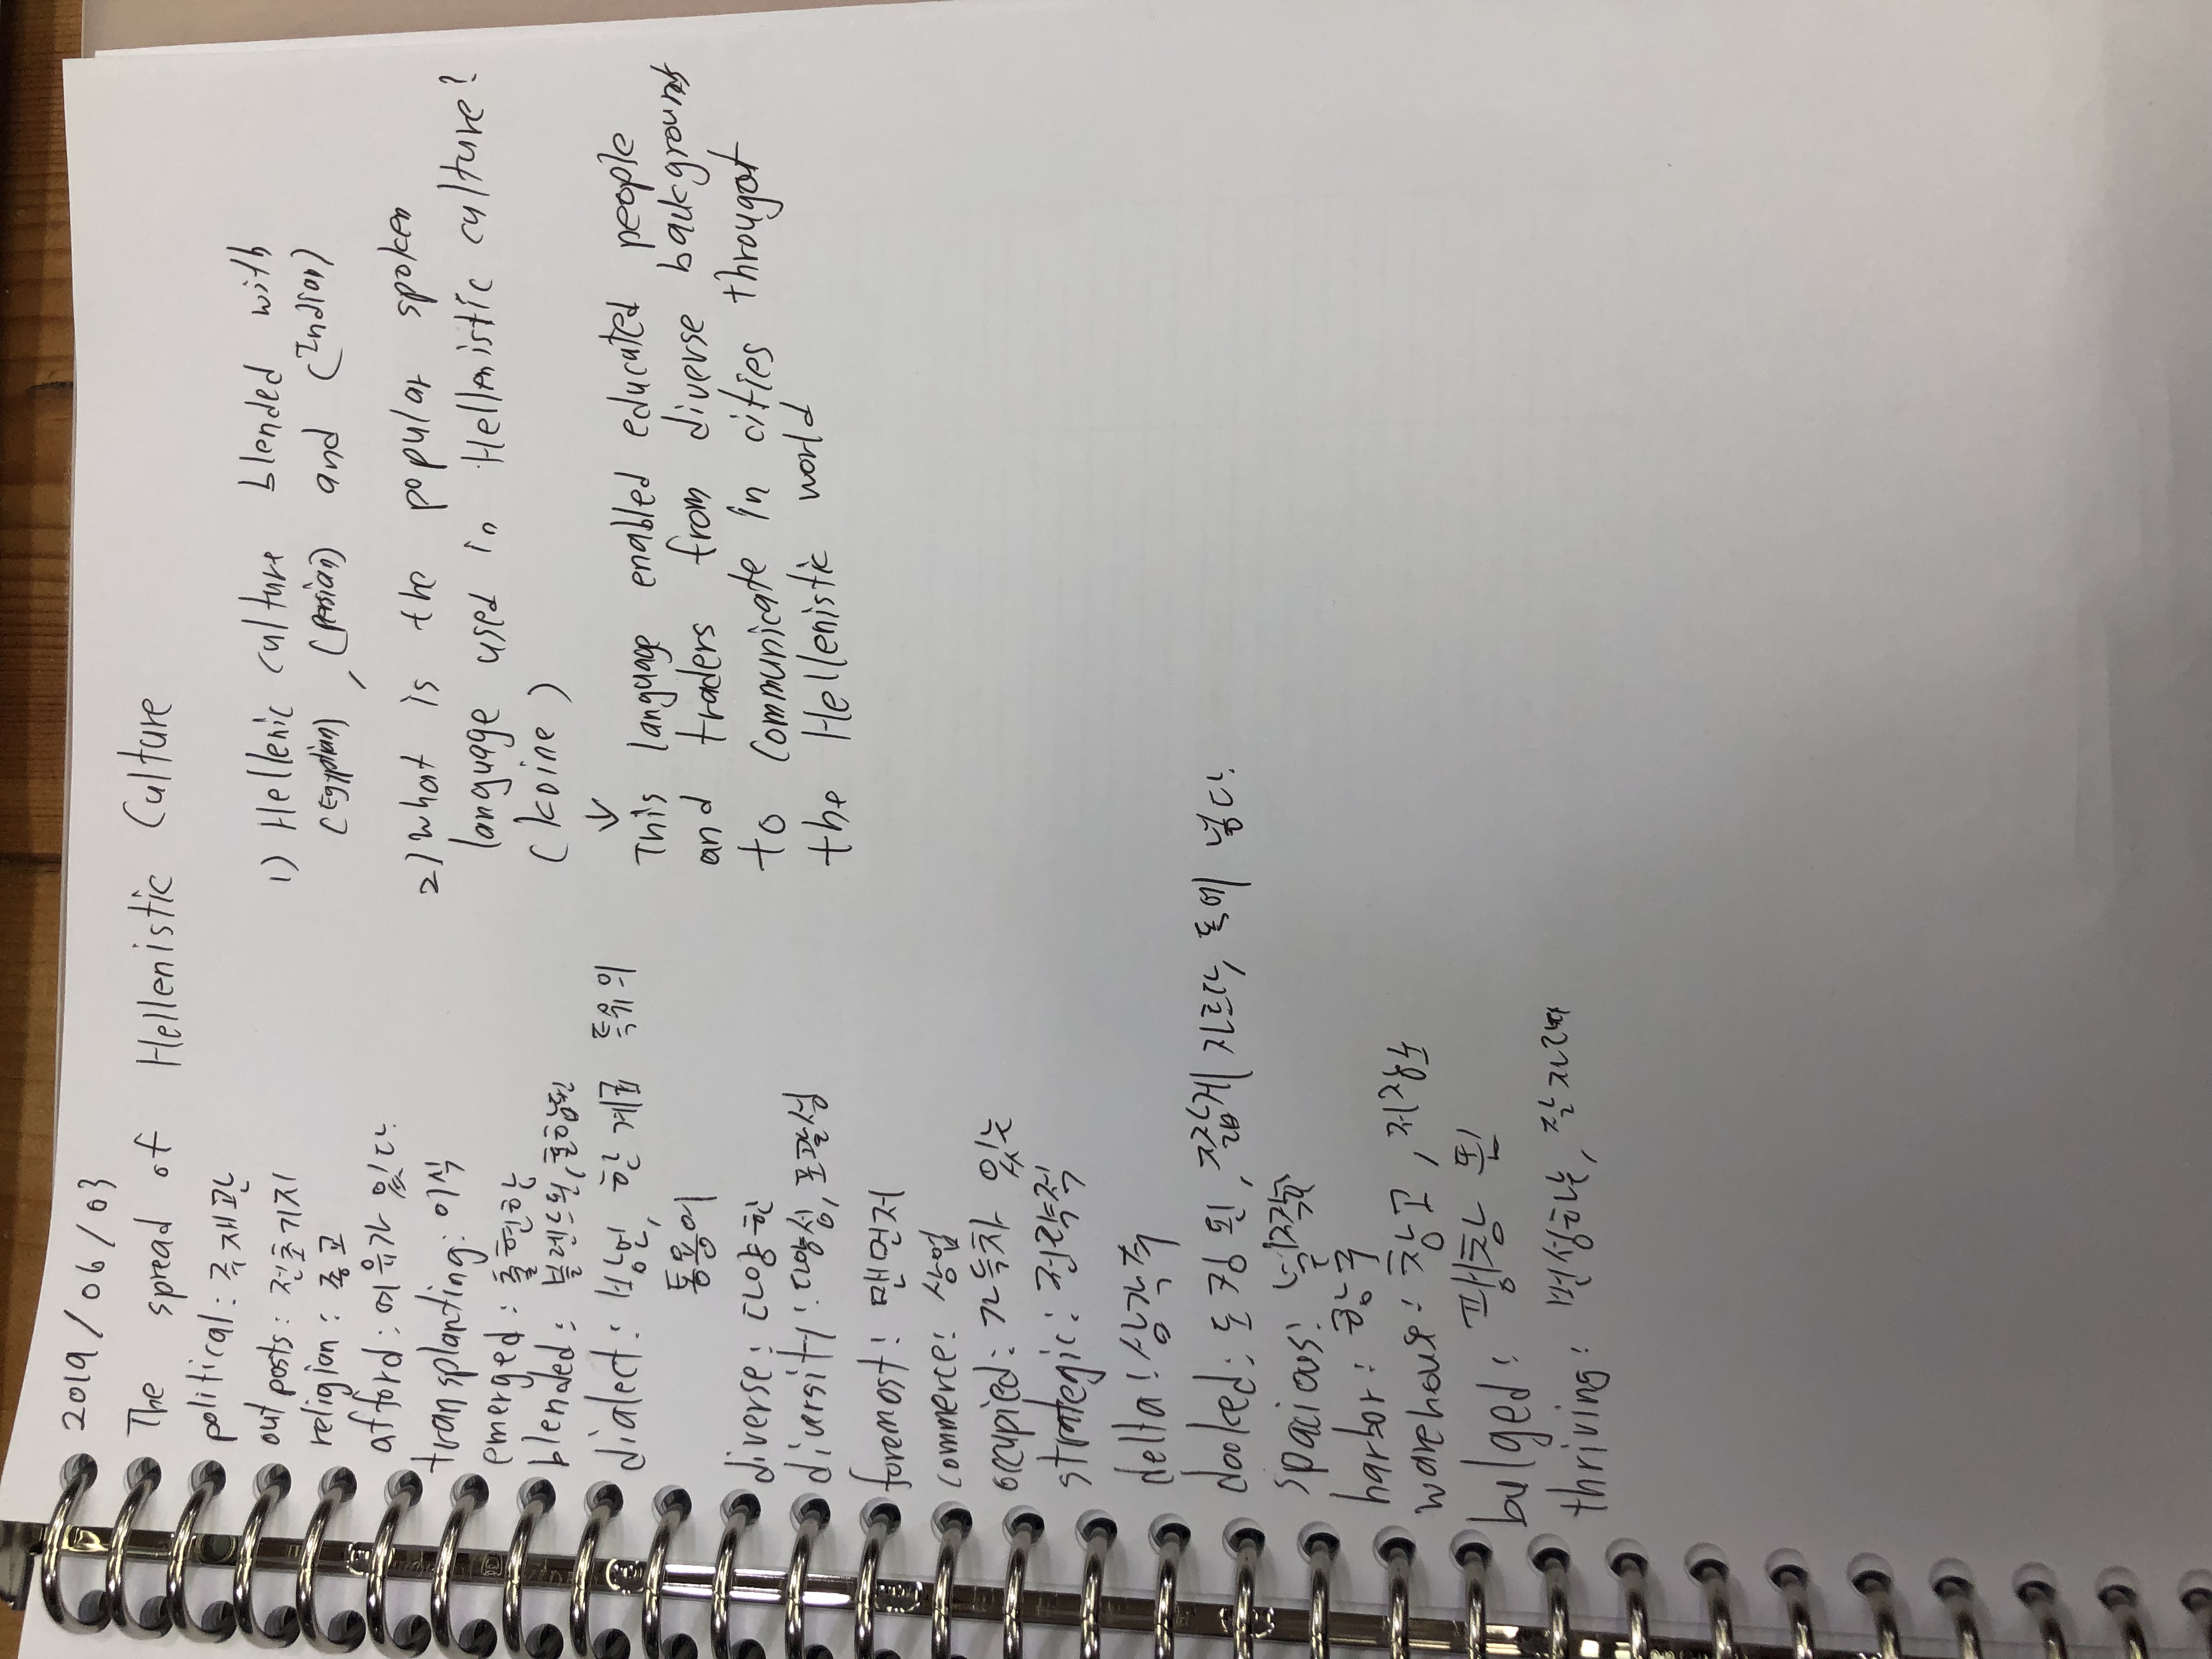 2019/06/03
The spread of Hellenistic Culture
political: 주재관
outposts: 전초기지
religion: 종교
afford: 여유가 있다.
transplanting: 이식
emerged: 출현한
blended: 블렌드된, 혼합된
dialect: 방언, 한 계급 특유의
통용어
diverse: 다양한
diversity: 다양성, 포괄성
foremost: 맨먼저
commerce: 상업
occupied: 가득차 있는
strategic: 전략적
delta: 삼각주
dooked: 도킹 된, 짧게 자르다, 독에 넣다.
spacious: 널찍한
harbor: 항구
warehouse: 창고, 저장소
bulged: 팽창 된
thriving: 번성하는, 잘 자라는
1) Hellenic culture blended with
(Egyptian), (persian) and (Indian)
2) what is the popular spoken
language used in Hellenistic culture?
(koine)
↓
This language enabled educated people
and traders from diverse backgrounds
to communicate in cities througot
the Hellenistic world